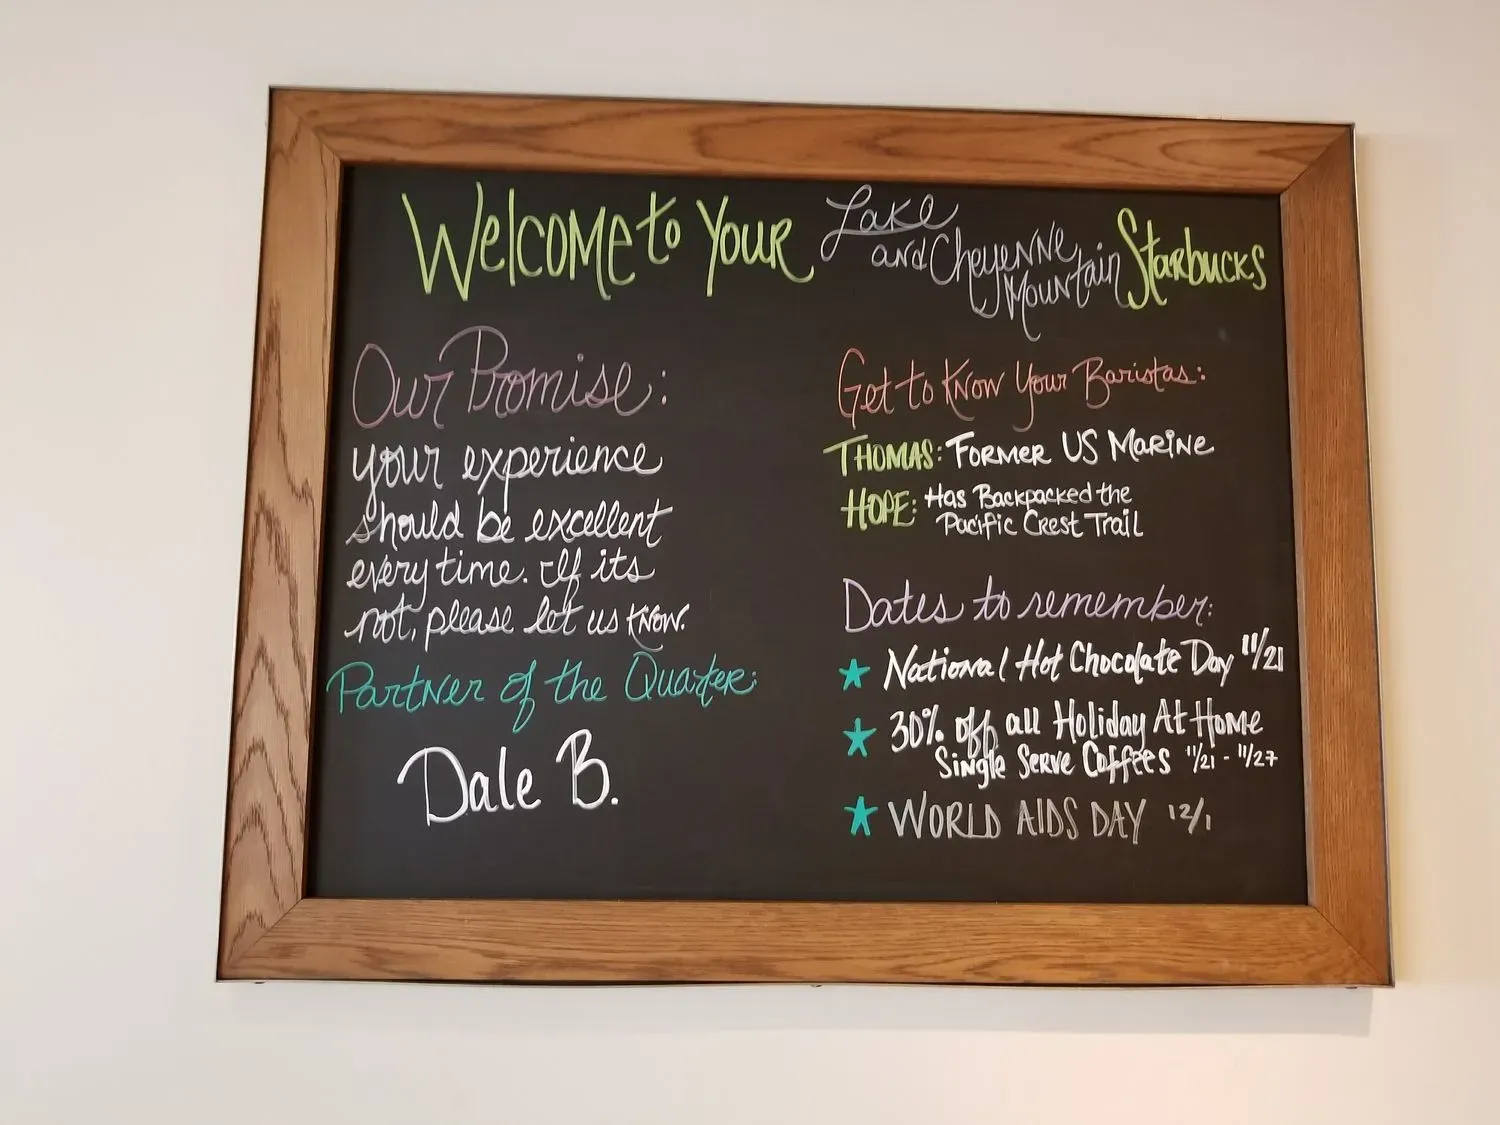 Welcome to Your Lake and Cheyenne Mountain Starbucks
Our Promise:
your experience
should be excellent
every time. If its
not, please let us know.
Partner of the Quarter:
Dale B.
Get to Know Your Baristas:
THOMAS: Former US Marine
HOPE: Has Backpacked the
Pacific Crest Trail
Dates to remember:
★ National Hot Chocolate Day 11/21
★ 30% off all Holiday At Home
Single Serve Coffees 11/21 - 11/27
★ WORLD AIDS DAY 12/1